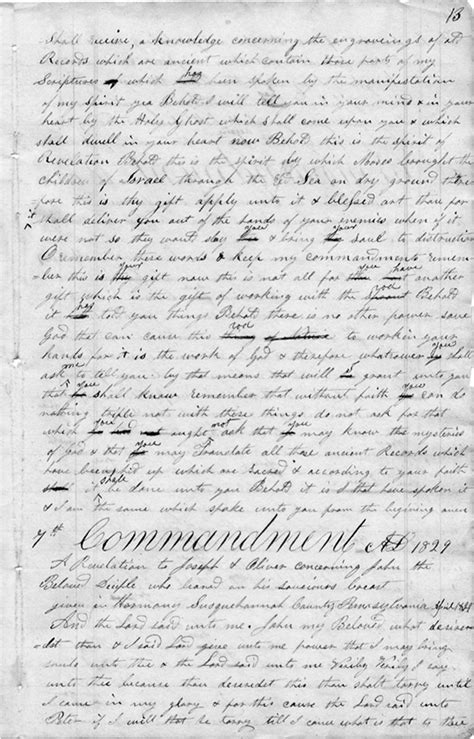 13
shall receive, a knowledge concerning the engraveings of old
Records which are ancient which contain those parts of my
Scriptures of which has been spoken by the manifestation
of my Spirit yea Behold I will tell you in your mind & in your
heart by the Holy Ghost which shall come upon you & which
shall dwell in your heart now Behold this is the spirit of
Revelation Behold this is the spirit by which Moses brought the
children of Israel through the Red Sea on dry ground there
fore this is thy gift apply unto it & blessed art thou for
it shall deliver you out of the hands of your enemies when if it
were not so they would slay you & bring your soul to distruction
O remember these words & keep my commandments remem
ber this is your gift now this is not all for you have another
gift which is the gift of working with the rod Behold
it has told you things Behold there is no other power save
God that can cause this rod thing of Nature to work in your
hands for it is the work of God & therefore whatsoever you shall
ask me to tell you by that means that will I grant unto you
that you shall know remember that without faith you can do
nothing trifle not with these things do not ask for that
which you ought not ask that you may know the mysteries
of God & that you may Translate all those ancient Records which
have been hid up which are Sacred & according to your faith
shall it be done unto you Behold it is I that have spoken it
& I am the same which spoke unto you from the begining amen
7th Commandment AD 1829
A Revelation to Joseph & Oliver concerning John the
Beloved Deciple who leaned on his saviours breast
given in Harmony Susquehannah County Pennsylvania April 1829
And the Lord said unto me John my Beloved what desires
dst thou & I said Lord give unto me power that I may bring
souls unto thee & the Lord said unto me Verily Verily I say
unto thee because thou deseredst this thou shalt tarry until
I come in my glory & for this cause the Lord said unto
Peter if I will that he tarry till I come what is that to thee